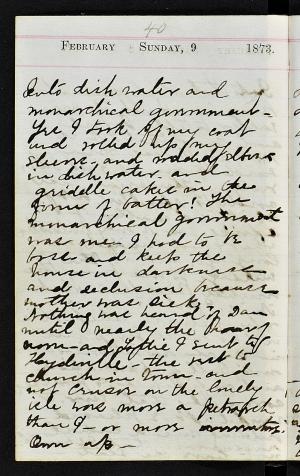 40
FEBRUARY SUNDAY, 9 1873.
into dish water and
monarchical government -
Yes I took off my coat
and rolled up my
sleeves - and waded elbows
in dish water and
griddle cakes in the
form of batter! The
monarchical government
was me - I had to be
boss and keep the
house in darkness
and seclusion because
mother was sick.
Nothing was heard of Dan
until nearly the hour of
noon - and Lottie I sent to
- the rest to
church in town - and
no Crusoe on the lonely
isle was more a
than I - or more